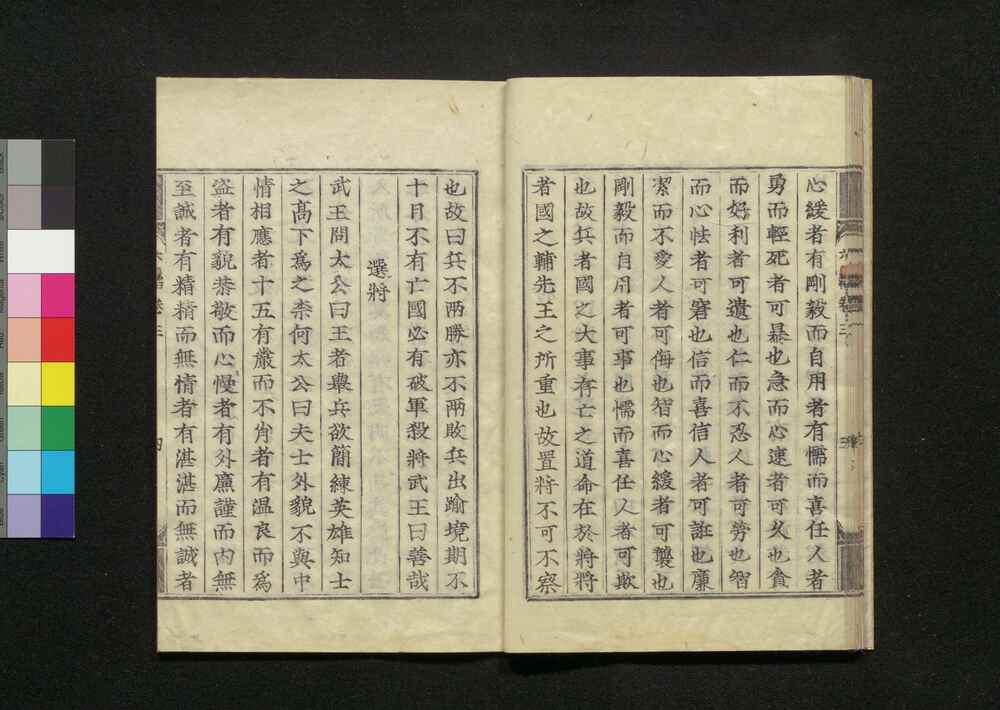 心緩者有剛毅而自用者有懦而喜任人者
勇而輕死者可暴也急而心速者可久也貪
而好利者可遺也仁而不忍人者可勞也智
而心怯者可窘也信而喜信人者可誑也廉
潔而不愛人者可侮也智而心緩者可襲也
剛毅而自用者可事也懦而喜任人者可欺
也故兵者國之大事存亡之道命在於將將
者國之輔先王之所重也故置將不可不察
也故曰兵不兩勝亦不兩敗兵出踰境期不
十月不有亡國必有破軍殺將武王曰善哉
選將
武王問太公曰王者舉兵欲簡練英雄知士
之高下爲之柰何太公曰夫士外貌不與中
情相應者十五有嚴而不肖者有温良而爲
盜者有貌恭敬而心慢者有外廉謹而内無
至誠者有精精而無情者有湛湛而無誠者
卷三
四